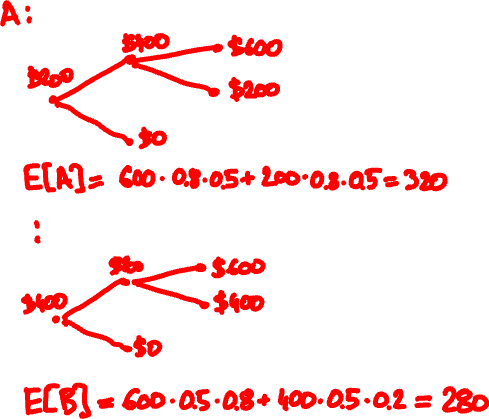 A:
$400
$600
$200
$200
$0
E[A] = 600 · 0.8 · 0.5 + 200 · 0.8 · 0.5 = 320
:
$600
$400
$400
$0
E[B] = 600 · 0.5 · 0.8 + 400 · 0.5 · 0.2 = 280